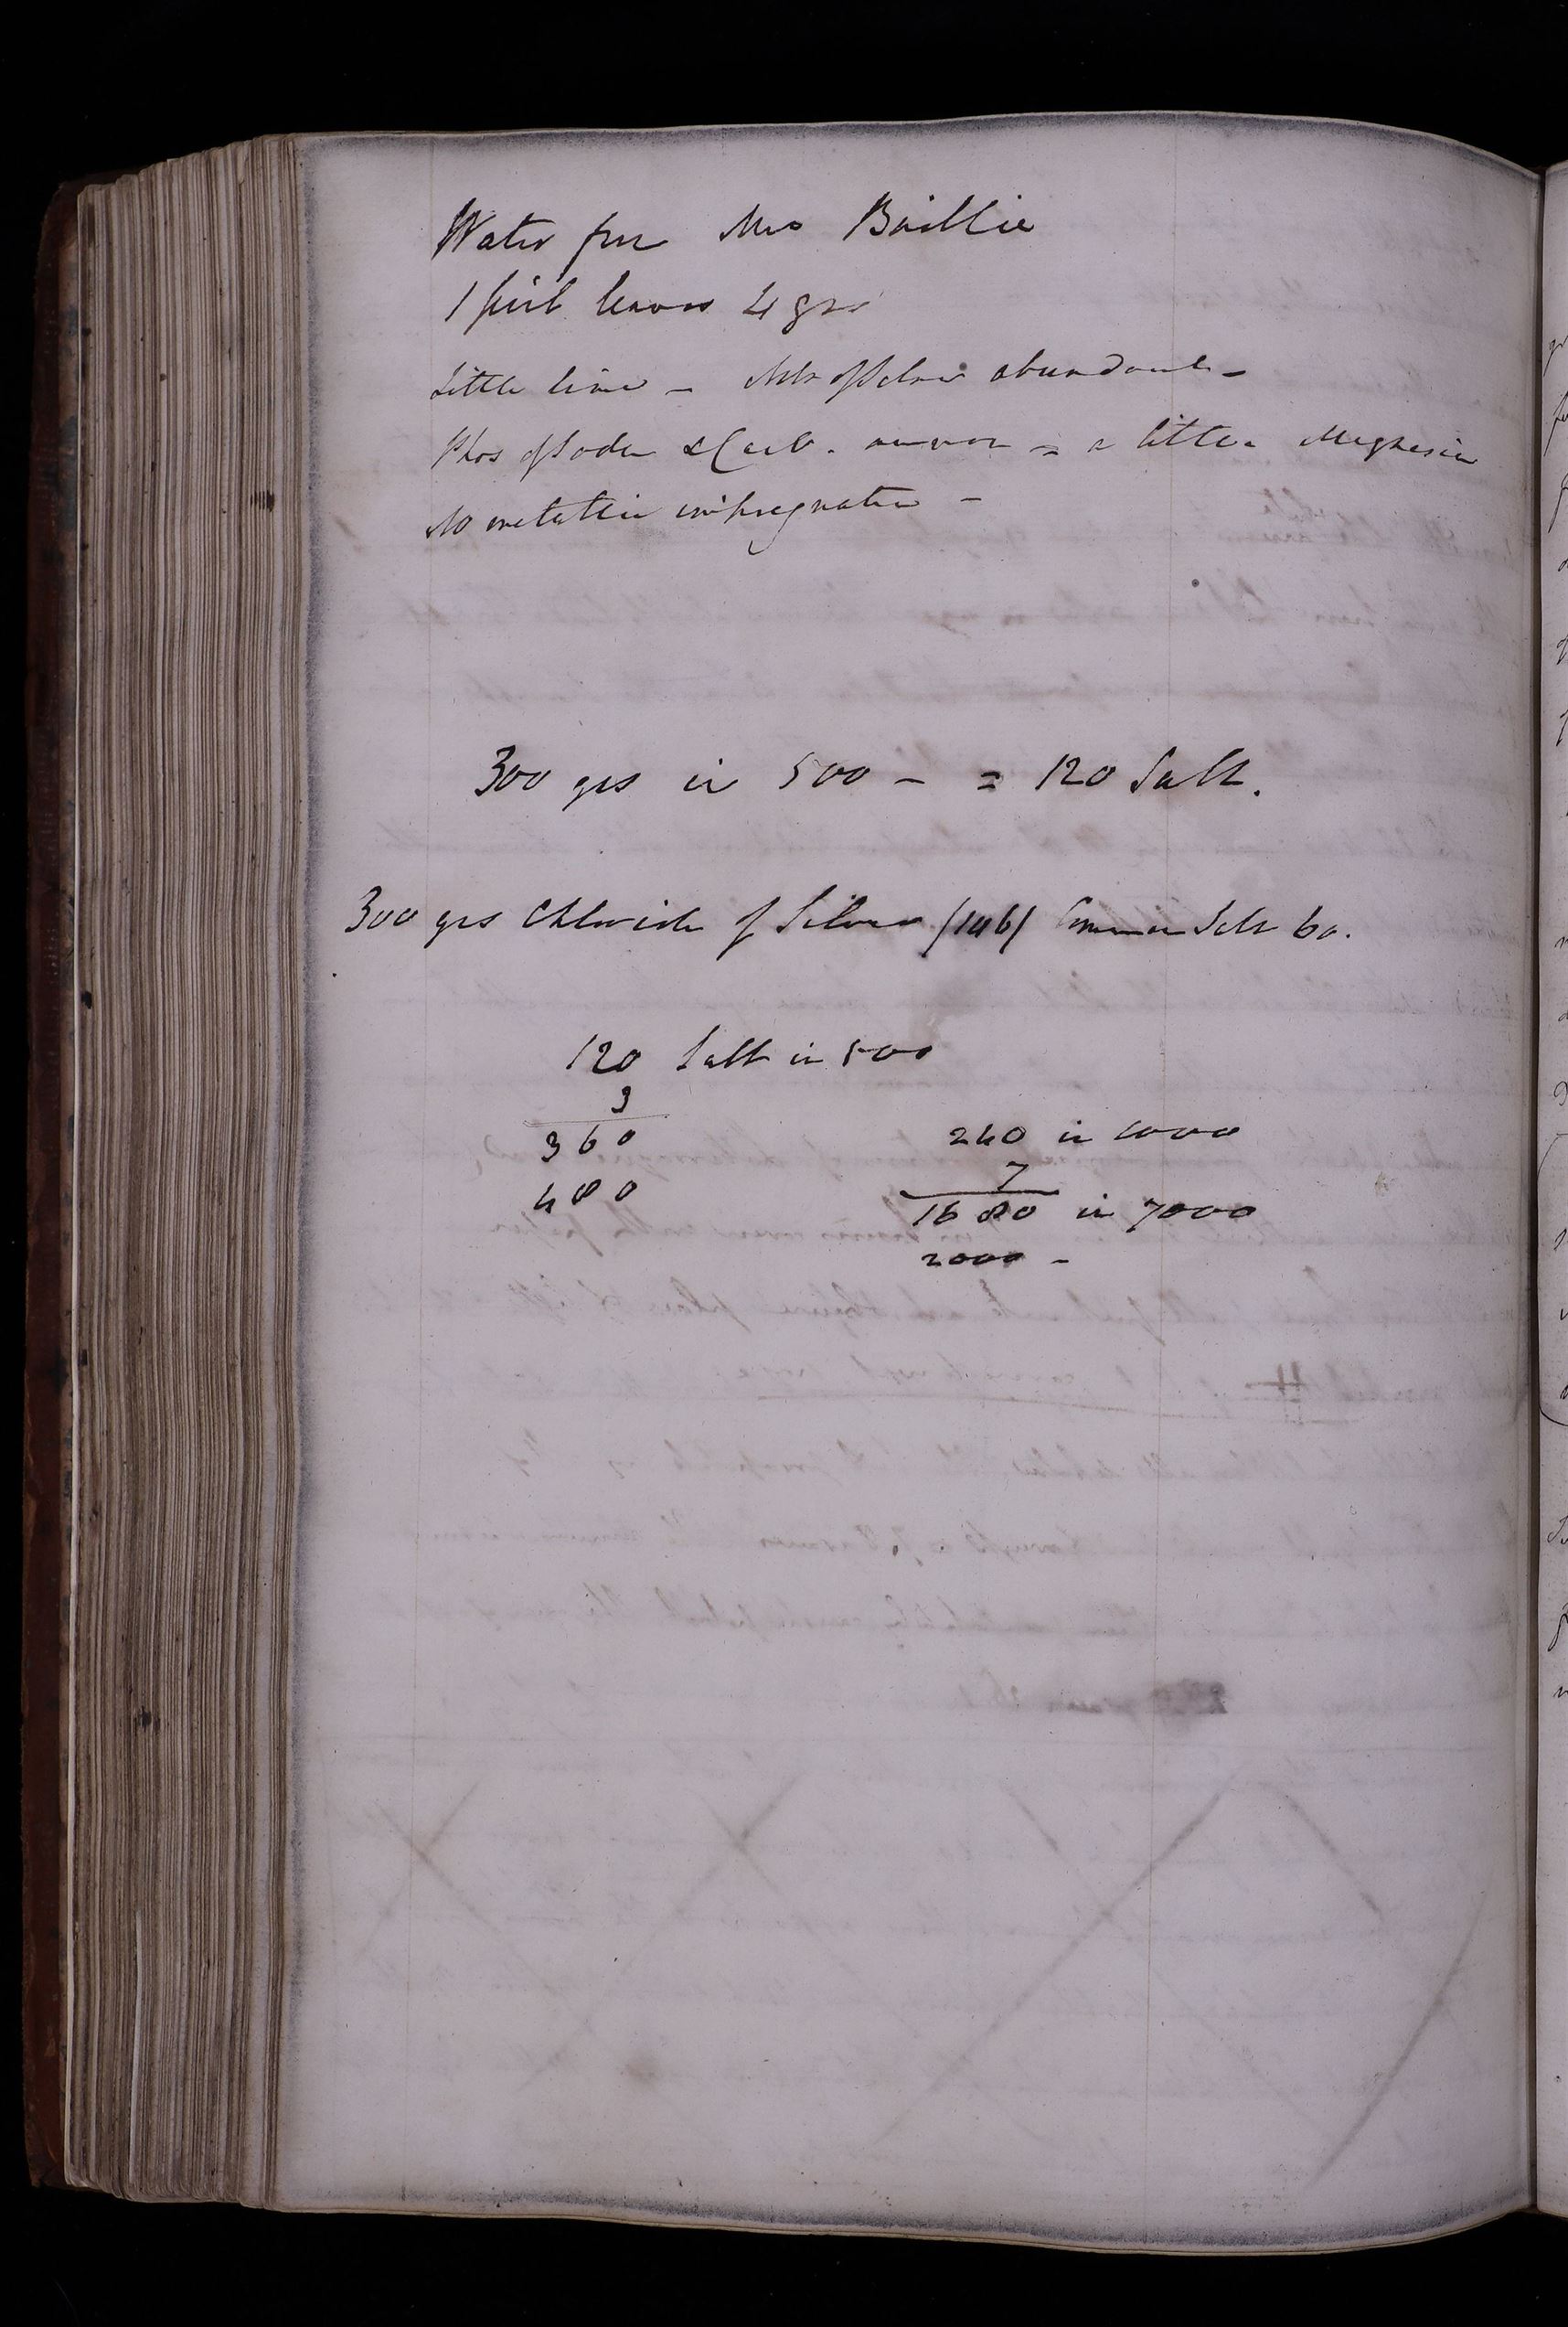 Water from Mrs Baillie
1 pint leaves 4 grs
Little lime - of Silver abundant -
Phos of Soda & Carb. ammon = a little Magnesia
No metallic impregnation -
300 grs in 500 - = 120 Salt.
300 grs Chloride of Silver (146) Common Salt 60.
120 Salt in 500
3
360
480
240 in 1000
7
1680 in 7000
2000 -